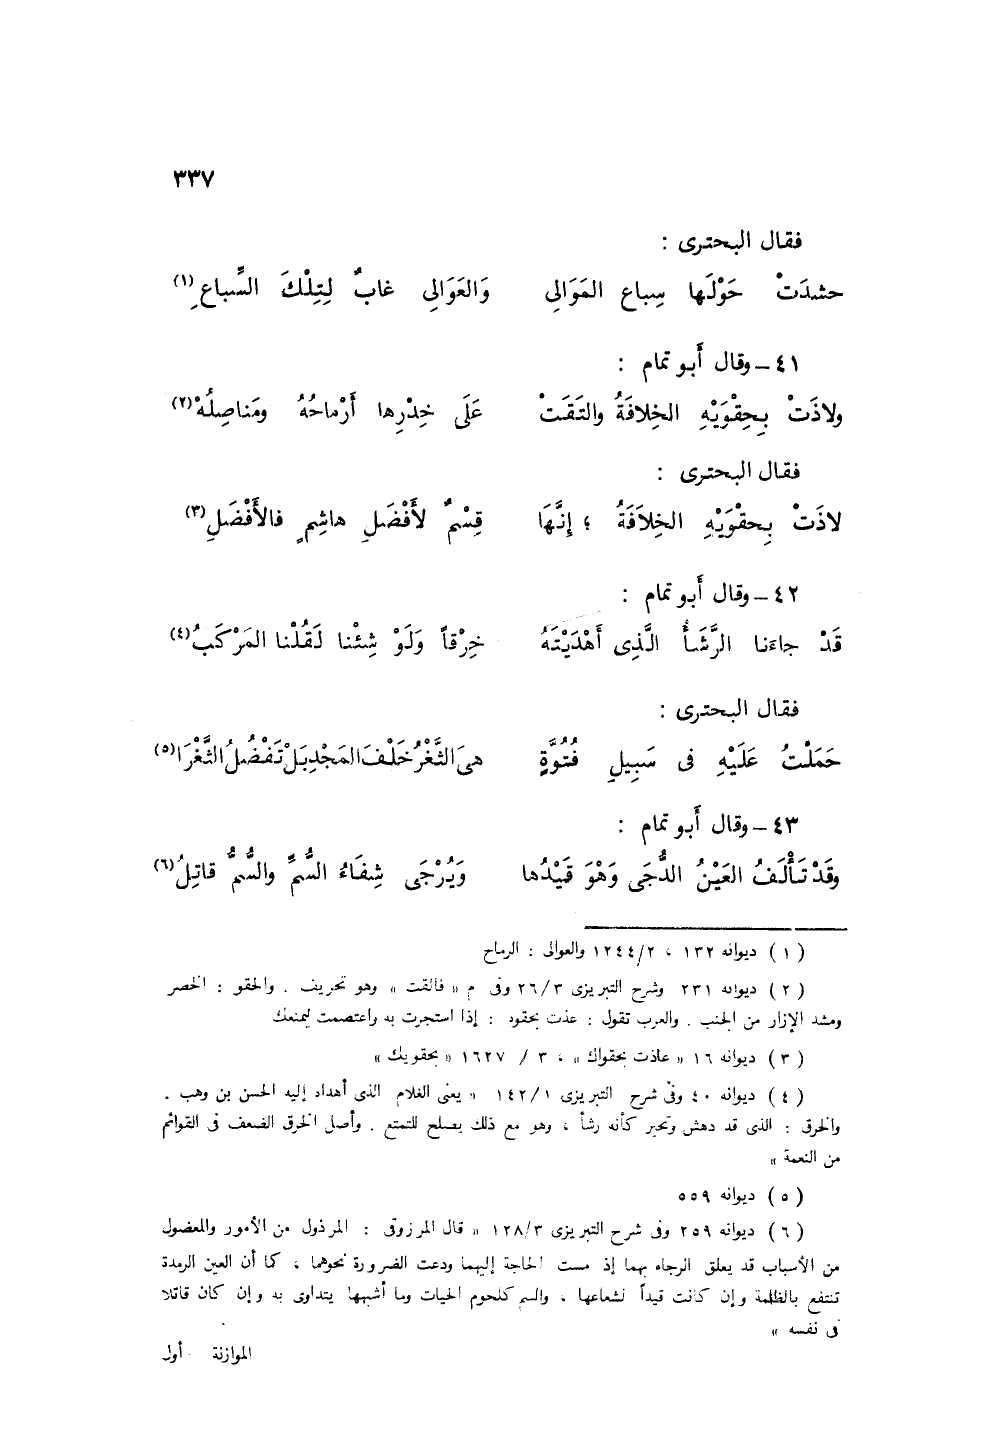 ٣٣٧
فقال البحترى :
حشدَتْ حَوْلَها سِباع المَوَالِى وَالعَوَالِى غابٌ لِتِلْكَ السِّباعِ (١)
٤١ – وقال أَبو تمام :
ولاذَتْ بِحِقْوَيْهِ الخِلافَةُ والتَقَتْ عَلَى خِدْرِها أَرْماحُهُ ومَناصِلُهْ (٢)
فقال البحترى :
لاذَتْ بِحقْوَيْهِ الخِلاَفَةُ ؛ إِنَّهَا قِسْمٌ لأَفْضَلِ هاشِمٍ فالأَفْضَلِ (٣)
٤٢ – وقال أَبو تمام :
قَدْ جاءَنا الرَّشَأُ الَّذِى أَهْدَيْتَهُ خِرْقاً وَلَوْ شِئْنا لَقُلْنا المَرْكَبُ (٤)
فقال البحترى :
حَمَلْتُ عَلَيْهِ فى سَبِيلِ فُتُوَّةٍ هىَ الثَّغْرُ خَلْفَ المَجْدِ بَلْ تَفْضُلُ الثَّغْرَا (٥)
٤٣ – وقال أَبو تمام :
وقَدْ تَأْلَفُ العَيْنُ الدُّجَى وَهْوَ قَيْدُها وَيُرْجَى شِفَاءُ السُّمِّ والسُّمُّ قاتِلُ (٦)
( ١ ) ديوانه ١٣٢ ، ١٢٤٤/٢ والعوالى : الرماح
( ٢ ) ديوانه ٢٣١ وشرح التبريزى ٢٦/٣ وفى م « فالقت » وهو تحريف . والحقو : الخصر
ومشد الإزار من الجنب . والعرب تقول : عذت بحقوه : إذا استجرت به واعتصمت ليمنعك
( ٣ ) ديوانه ١٦ « عاذت بحقواك » ، ٣ / ١٦٢٧ « بحقويك »
( ٤ ) ديوانه ٤٠ وفى شرح التبريزى ١٤٢/١ « يعنى الغلام الذى أهداه إليه الحسن بن وهب .
والخرق : الذى قد دهش وتحير كأنه رشأ ، وهو مع ذلك يصلح للتمتع . وأصل الخرق الضعف فى القوائم
من النعمة »
( ٥ ) ديوانه ٥٥٩
( ٦ ) ديوانه ٢٥٩ وفى شرح التبريزى ١٢٨/٣ « قال المرزوقى : المرذول من الأمور والمعضول
من الأسباب قد يعلق الرجاء بهما إذ مست الحاجة إليهما ودعت الضرورة نحوهما ، كما أن العين الرمدة
تنتفع بالظلمة وإن كانت قيداً لشعاعها ، والسم كلحوم الحيات وما أشبهها يتداوى به وإن كان قاتلا
فى نفسه »
الموازنة - أول